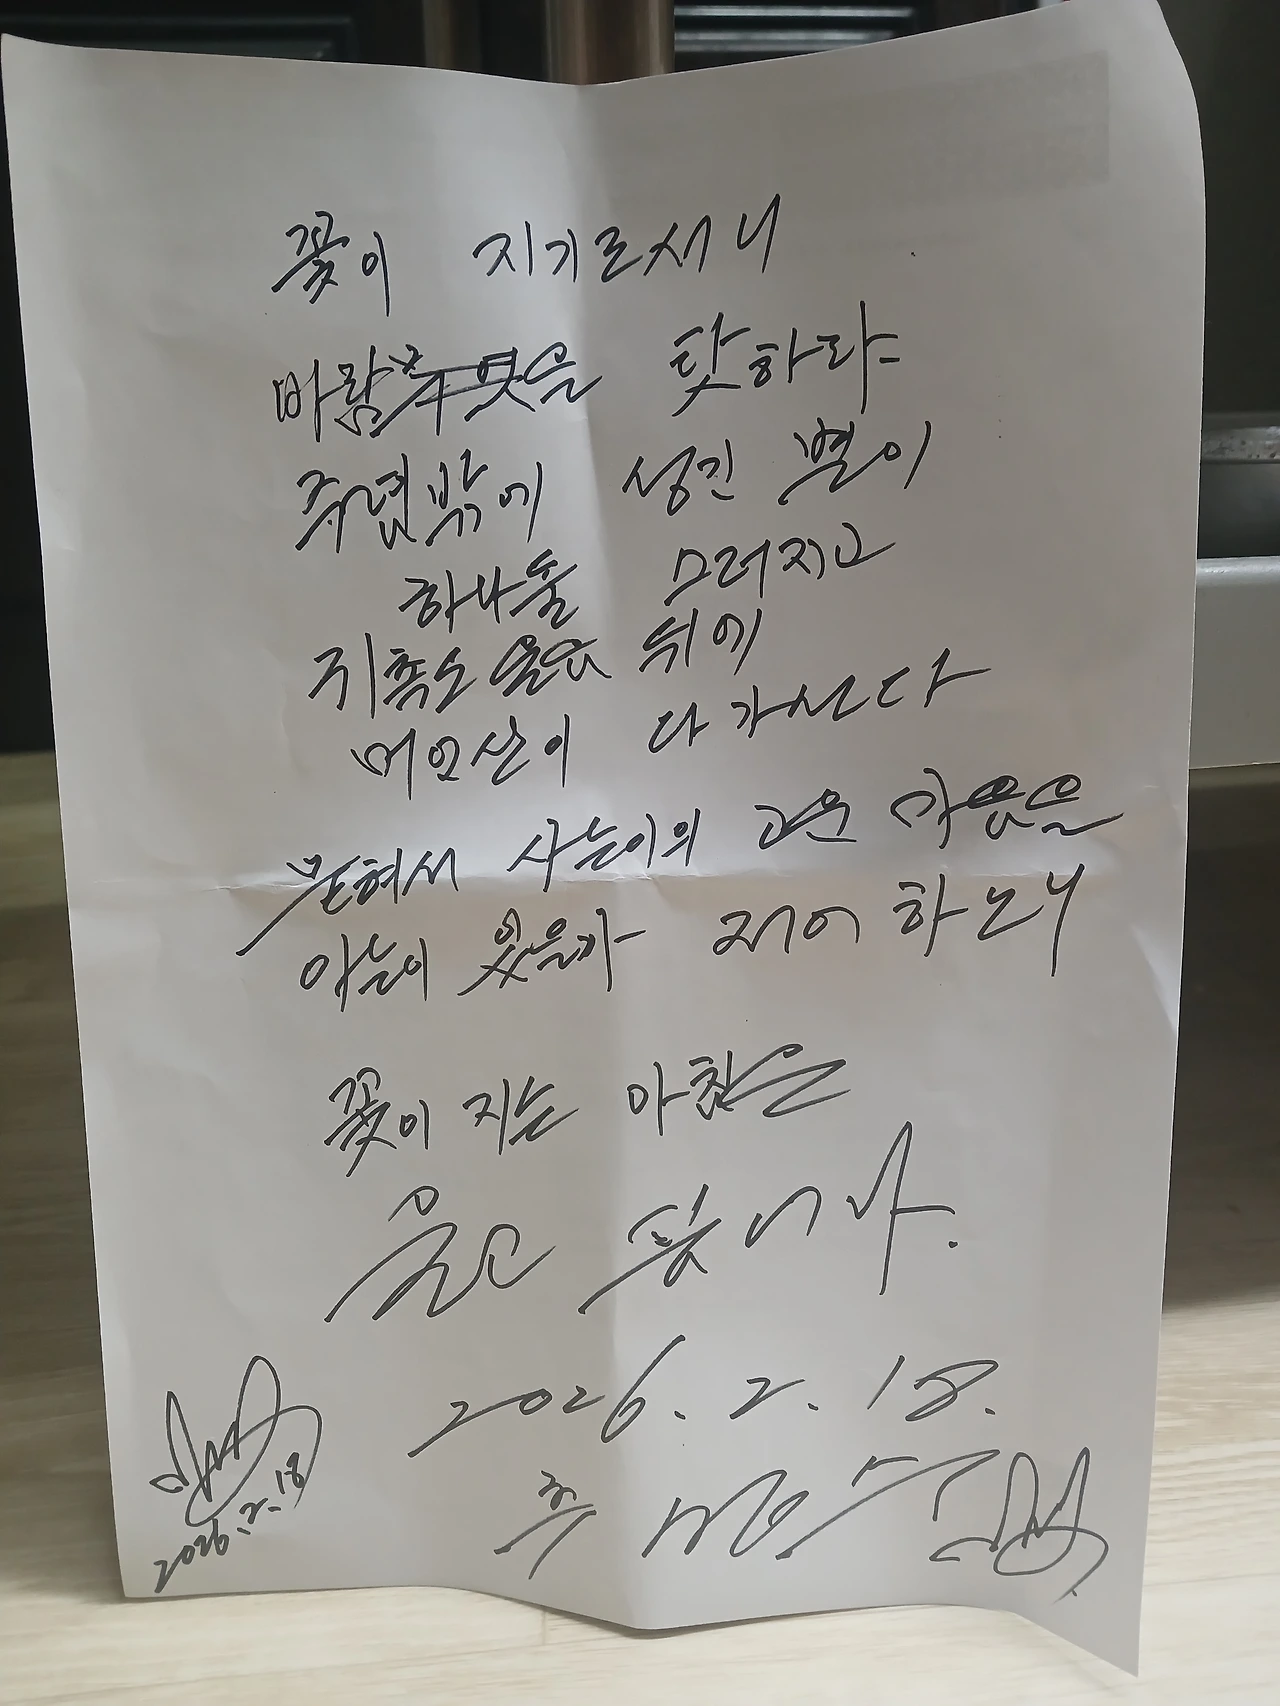 꽃이 지기로서니
바람을 탓하랴
주렴밖에 성긴 별이
하나둘 스러지고
귀촉도 울음 뒤에
머언산이 다가선다
묻혀서 사는이의 고운 마음을
아는이 있을까 저어 하노니
꽃이 지는 아침은
울고 싶어라.
2026. 2. 18.
2026.2.18